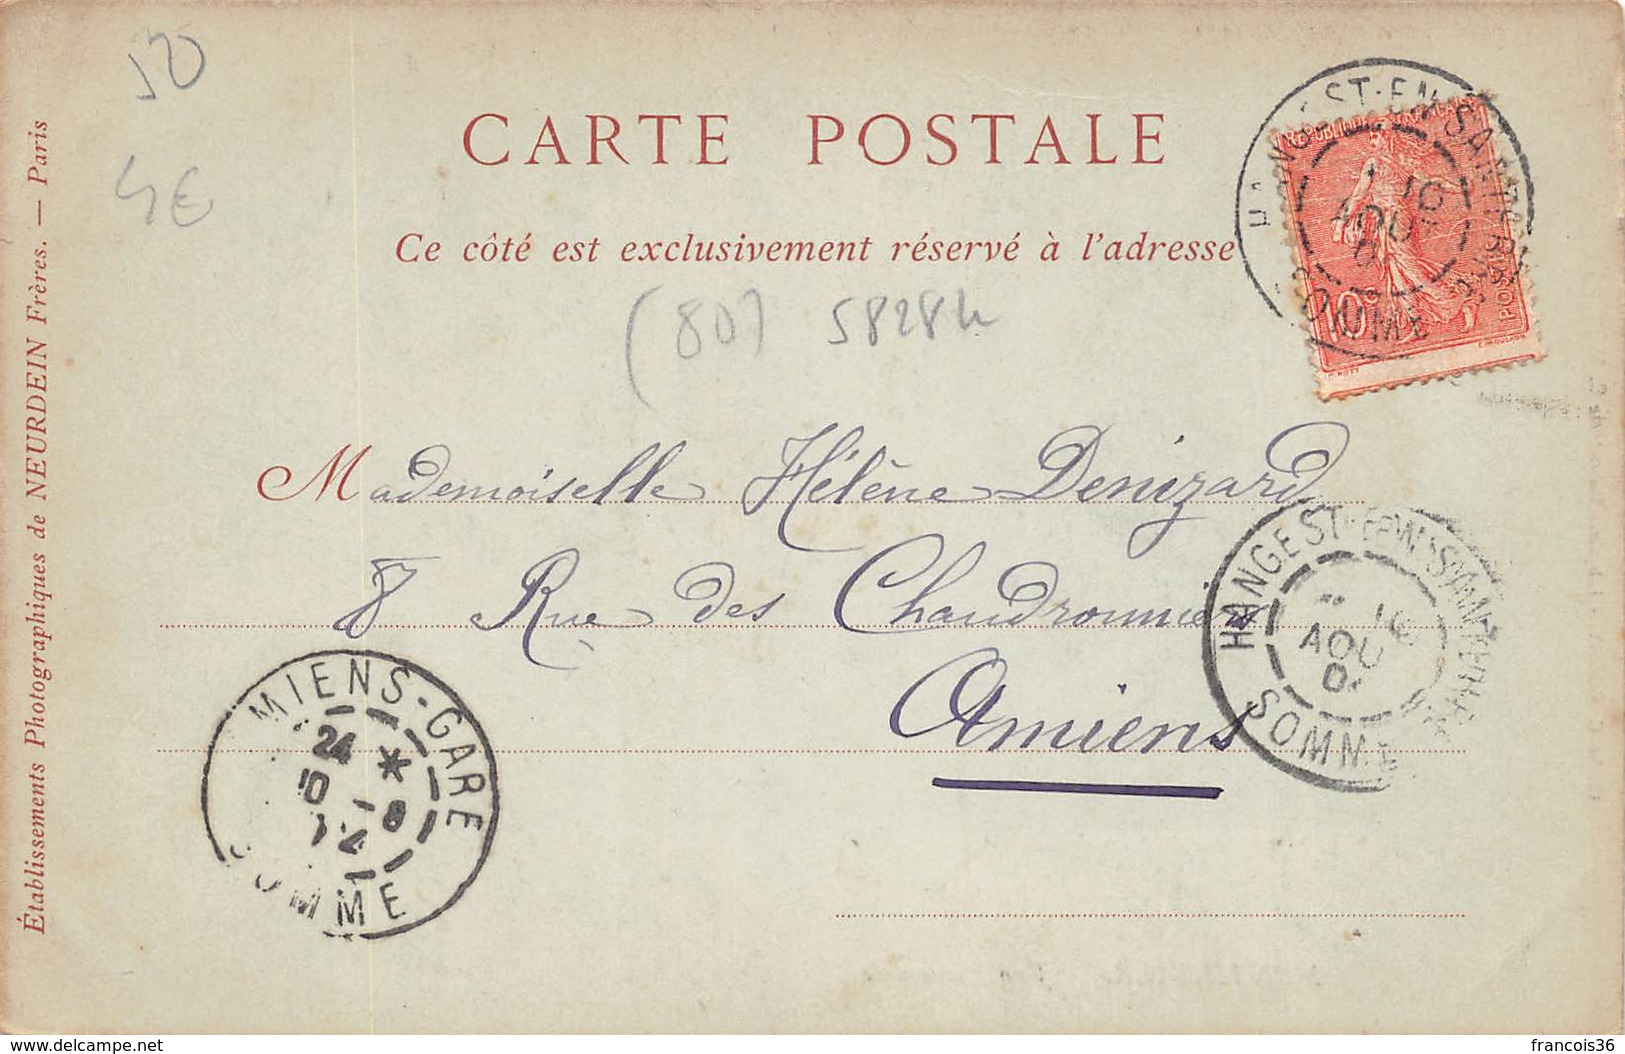 50
4€
CARTE POSTALE
Ce côté est exclusivement réservé à l'adresse
RÉPUBLIQUE FRANÇAISE
POSTES
10c
HANGEST-EN-SANTERRE
AOU
SOMME
(80) 58284
Mademoiselle Hélène Denizard
8 Rue des Chaudronniers
Amiens
HANGEST-EN-SANTERRE
10
AOU
SOMME
AMIENS-GARE
24 *
10 -8
SOMME
Établissements Photographiques de NEURDEIN Frères. — Paris
www.delcampe.net
francois36